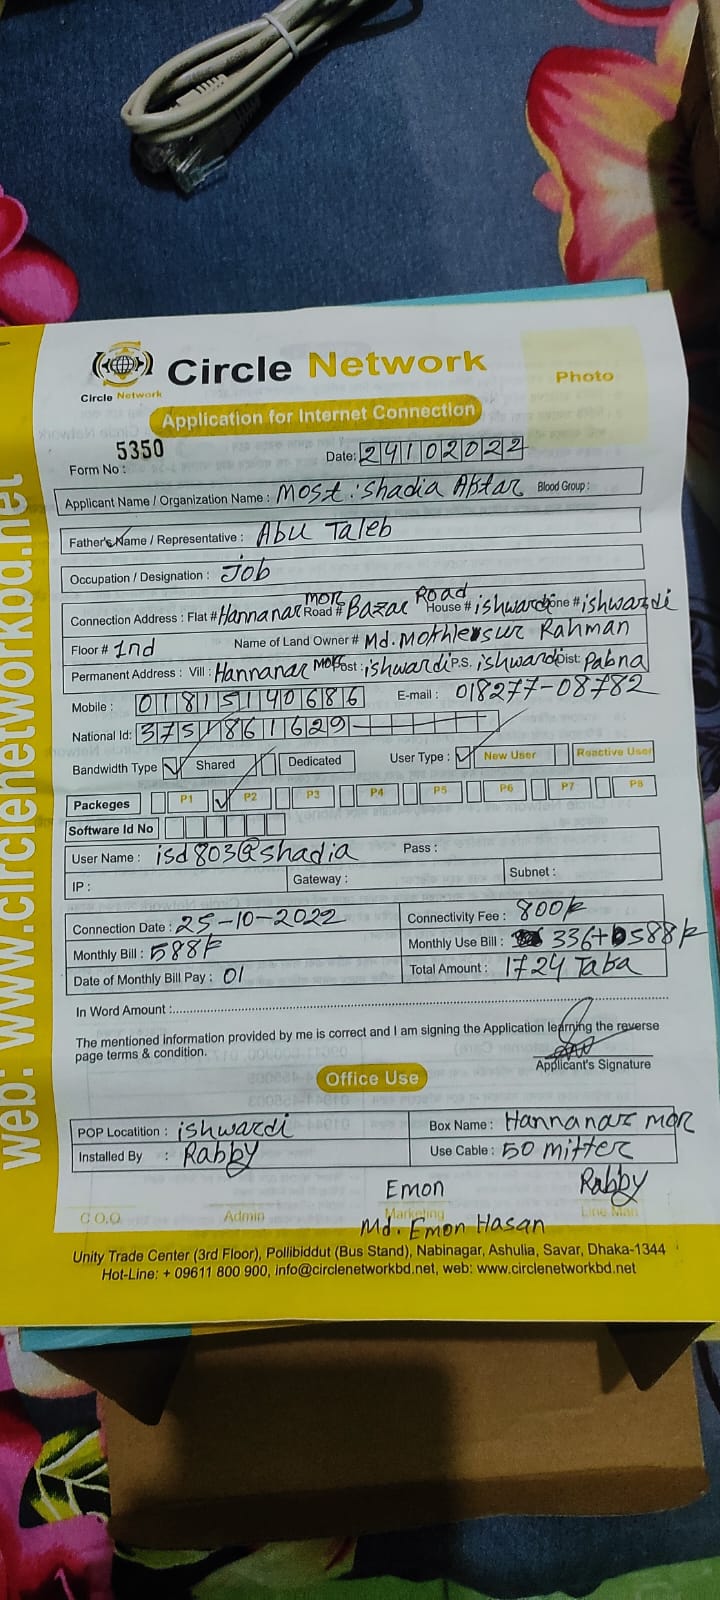 Circle Network
Circle Network
Photo
Application for Internet Connection
Form No : 5350
Date: 24102022
Applicant Name / Organization Name : Most: Shadia Aktar Blood Group :
Father's Name / Representative : Abu Taleb
Occupation / Designation : Job
Connection Address : Flat # Hannanar mor Road # Bazar Road House # ishwardi Zone # ishwardi
Floor # 1nd Name of Land Owner # Md. Mothleursur Rahman
Permanent Address : Vill : Hannanar mor Post : ishwardi P.S. ishwardi Dist: Pabna
Mobile : 01815140686 E-mail : 018277-08782
National Id: 3751861629
Bandwidth Type Shared Dedicated User Type : New User Reactive User
Packeges P1 P2 P3 P4 P5 P6 P7 P8
Software Id No
User Name : isd803@shadia Pass :
IP : Gateway : Subnet :
Connection Date : 25-10-2022 Connectivity Fee : 800/-
Monthly Bill : 588/- Monthly Use Bill : 336+588/-
Date of Monthly Bill Pay : 01 Total Amount : 1724 Taka
In Word Amount :
The mentioned information provided by me is correct and I am signing the Application learning the reverse
page terms & condition.
Applicant's Signature
Office Use
POP Locatition : ishwardi Box Name : Hannanar mor
Installed By : Rabby Use Cable : 50 mitter
Emon Rabby
C.O.O. Admin Marketing Line Man
Md. Emon Hasan
Unity Trade Center (3rd Floor), Pollibiddut (Bus Stand), Nabinagar, Ashulia, Savar, Dhaka-1344
Hot-Line: + 09611 800 900, info@circlenetworkbd.net, web: www.circlenetworkbd.net
web: www.circlenetworkbd.net